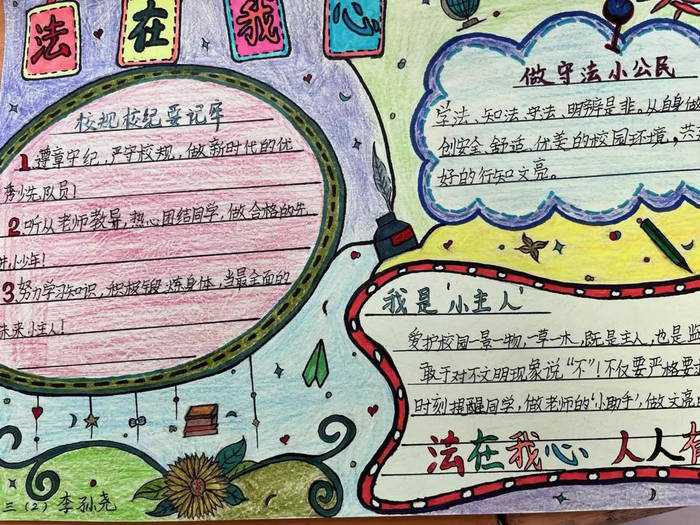 法在我心
校规校纪要记牢
1遵章守纪，严守校规，做新时代的优
秀少先队员！
2听从老师教导，热心团结同学，做合格的先
进小少年！
3努力学习知识，积极锻炼身体，当最全面的
未来小主人！
做守法小公民
学法、知法、守法、明辨是非。从自身做
创安全、舒适、优美的校园环境，共
好的行知文亮。
我是'小主人'
爱护校园一景一物，一草一木，既是主人，也是监
敢于对不文明现象说“不”！不仅要严格要求
时刻提醒同学，做老师的'小助手'，做文亮
法在我心 人人有
三（2）李孙尧